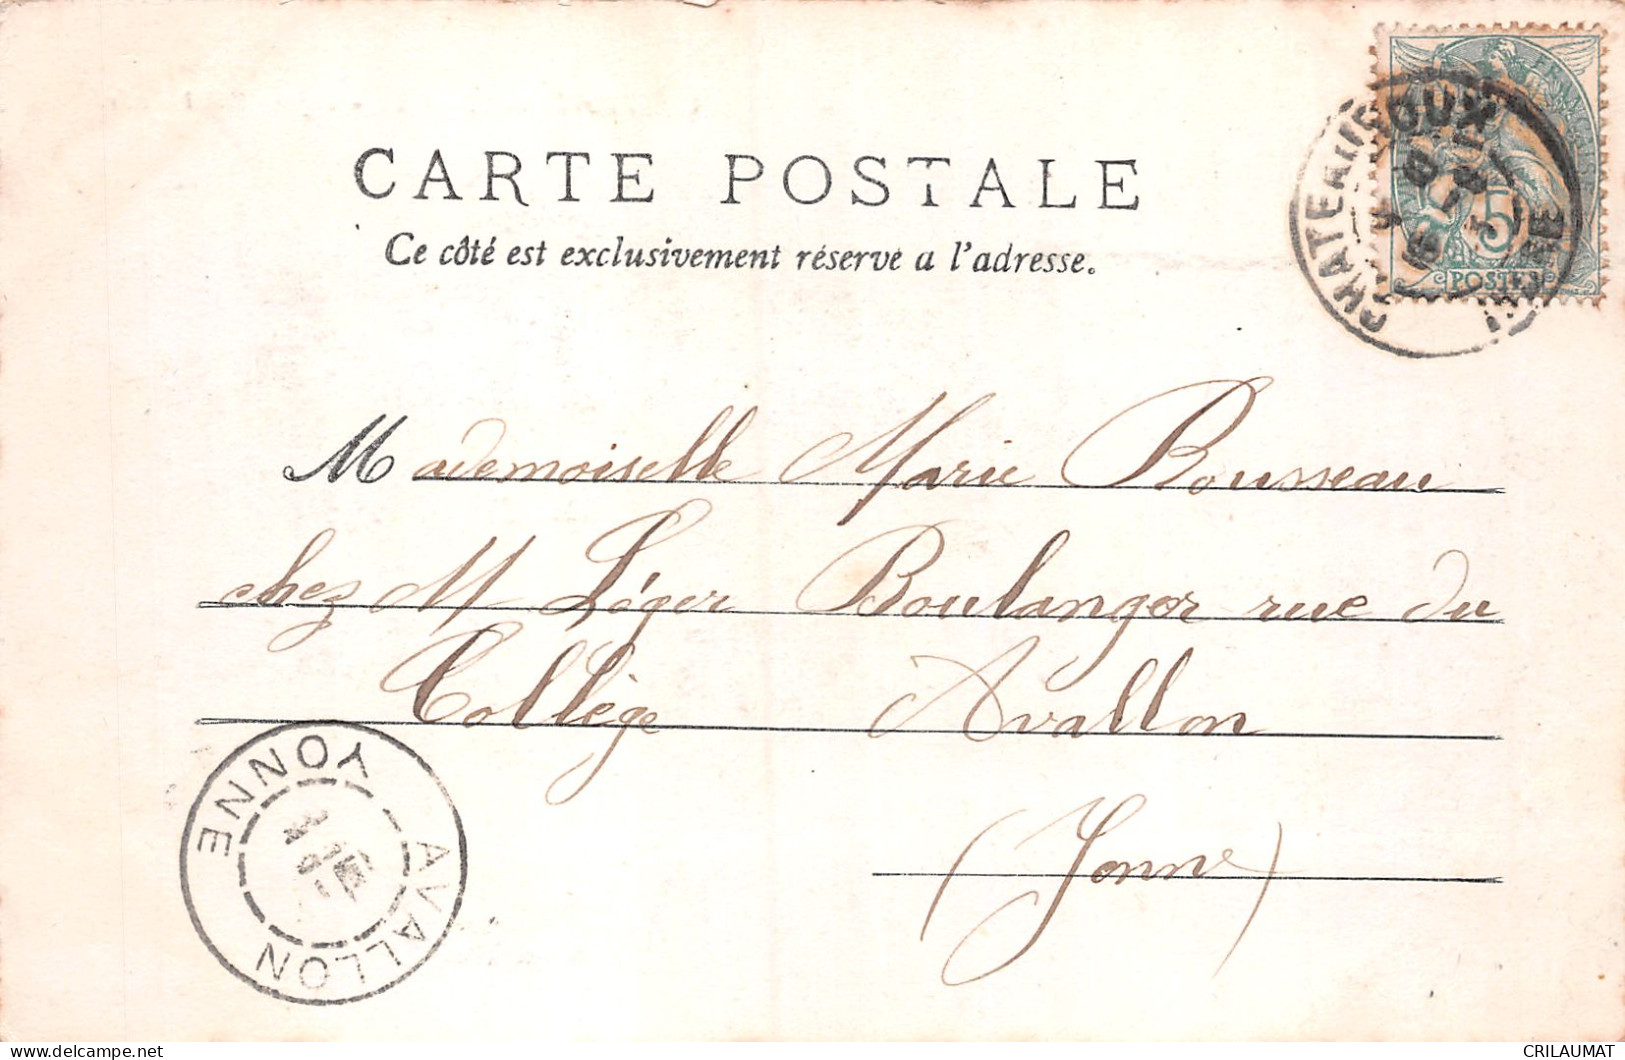 CARTE POSTALE
Ce côté est exclusivement réservé a l'adresse.
FRANÇAISE
5
POSTES
CHATEAUROUX
INDRE
Mademoiselle Marie Rousseau
chez M Léger Boulanger rue du
Collège Avallon
(Yonne)
AVALLON
YONNE
CRILAUMAT